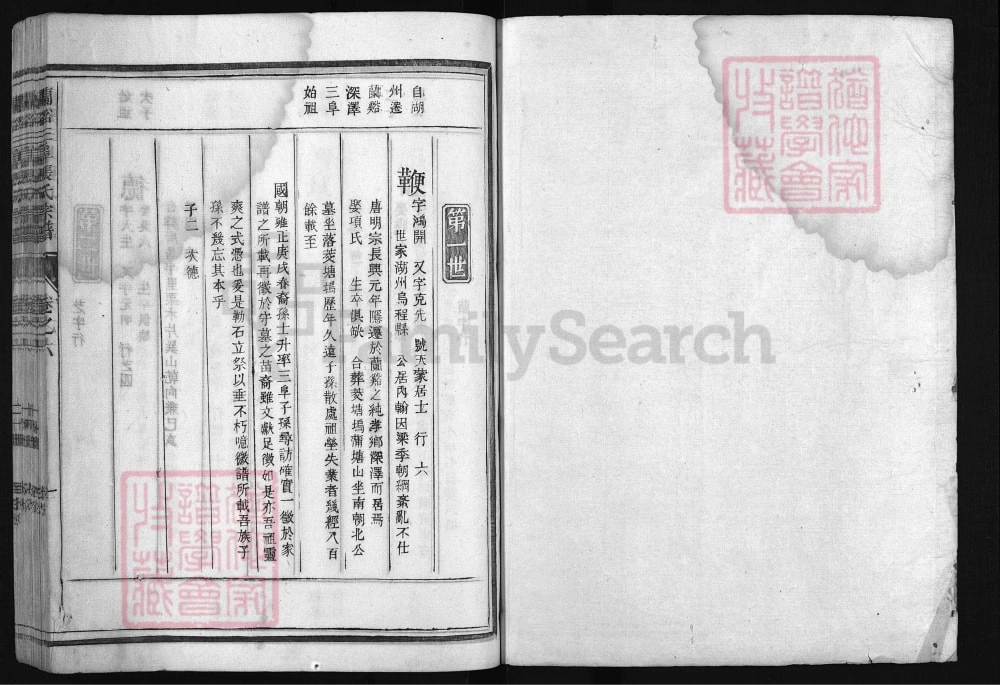 自湖
州遷
蘭谿
深澤
三阜
始祖
第一世
鞭 字鴻開 又字克先 號天蒙居士 行六
世家湖州烏程縣 公居內翰因梁季朝綱紊亂不仕
唐明宗長興元年隱遷於蘭谿之純孝鄉深澤而居焉
娶項氏 生卒俱缺 合葬菱塘塢蒲塘山坐南朝北公
墓坐落菱塘塢歷年久遠子孫散處祖塋失業者幾經八百
餘載至
國朝雍正庚戌春裔孫士升率三阜子孫尋訪確實一徵於家
譜之所載再徵於守墓之苗裔雖文獻足徵如是亦吾祖靈
爽之式憑也爰是勒石立祭以垂不朽噫微譜所載吾族子
孫不幾忘其本乎
子二 大德
張氏宗譜
卷之六
FamilySearch